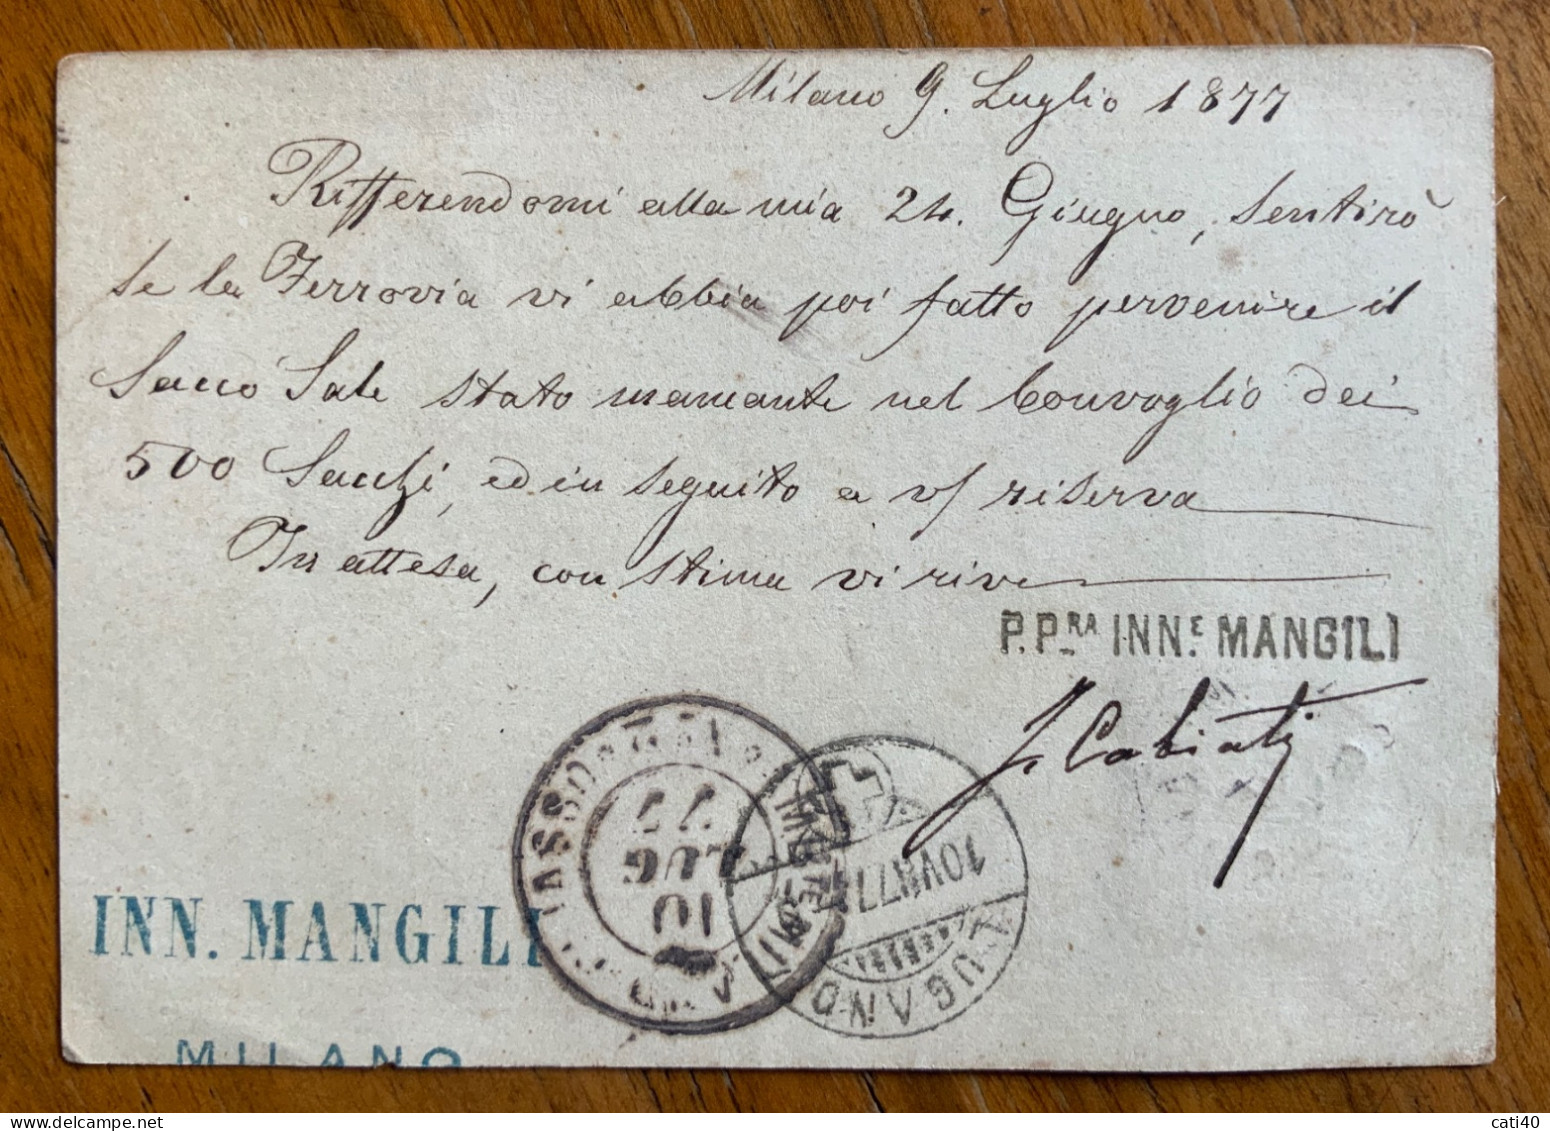 Milano 9. Luglio 1877
Rifferendomi alla mia 24. Giugno, sentirò
se la Ferrovia vi abbia poi fatto pervenire il
Sacco Sale stato mamante nel Convoglio dei
500 Sacchi, ed in seguito a v/ riserva
In attesa, con stima vi riv
P.PRA INN.E MANGILI
J. Cabiati
INN. MANGILI
MILANO
77
LUG
10
10 VII 77
LUGANO
cati40